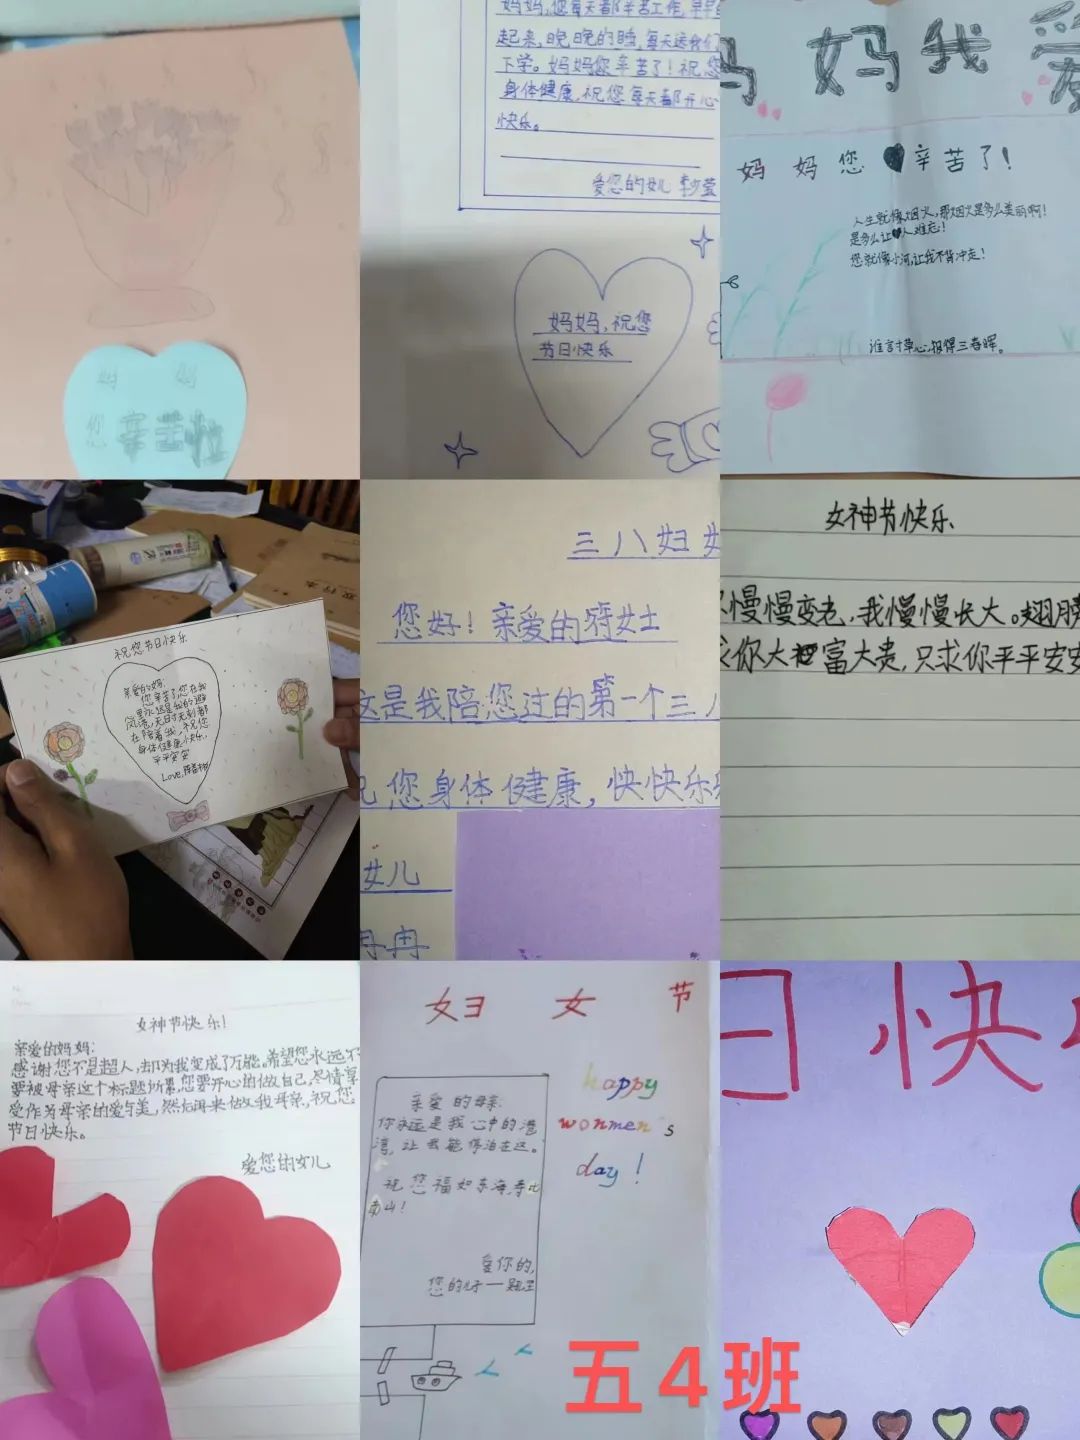 妈 妈
您 辛苦啦
妈妈,您每天都辛苦工作,早早的
起来,晚晚的睡,每天送我们
下学。妈妈您辛苦了!祝您
身体健康,祝您每天都开心
快乐。
爱您的女儿
妈妈,祝您
节日快乐
妈 妈 我 爱
妈 妈 您 辛 苦 了!
人生就像烟火,那烟火是多么美丽啊!
是多么让人难忘!
您就像小河,让我不背冲走!
谁言寸草心,报得三春晖。
祝您节日快乐
亲爱的妈:
您辛苦了,您在我
里永远是我的避
风港,无时无刻都
在陪着我,祝您
身体健康快乐,
平平安安
Love,
三 八 妇 女
您好!亲爱的 女士
这是我陪您过的第一个三八
祝您身体健康,快快乐乐
女儿
女神节快乐
你慢慢变老,我慢慢长大。翅膀
求你大 富大贵,只求你平平安安
女神节快乐!
亲爱的妈妈:
感谢您不是超人,却为我变成了万能。希望您永远不
要被母亲这个标题所累,您要开心的做自己,尽情享
受作为母亲的爱与美,然后再来做我母亲,祝您
节日快乐。
爱您的女儿
妇 女 节
happy
wonmen's
day!
亲爱的母亲:
你永远是我心中的港
湾,让我能停泊在这。
祝您福如东海,寿比
南山!
爱你的,
您的好一
日快乐
五4班